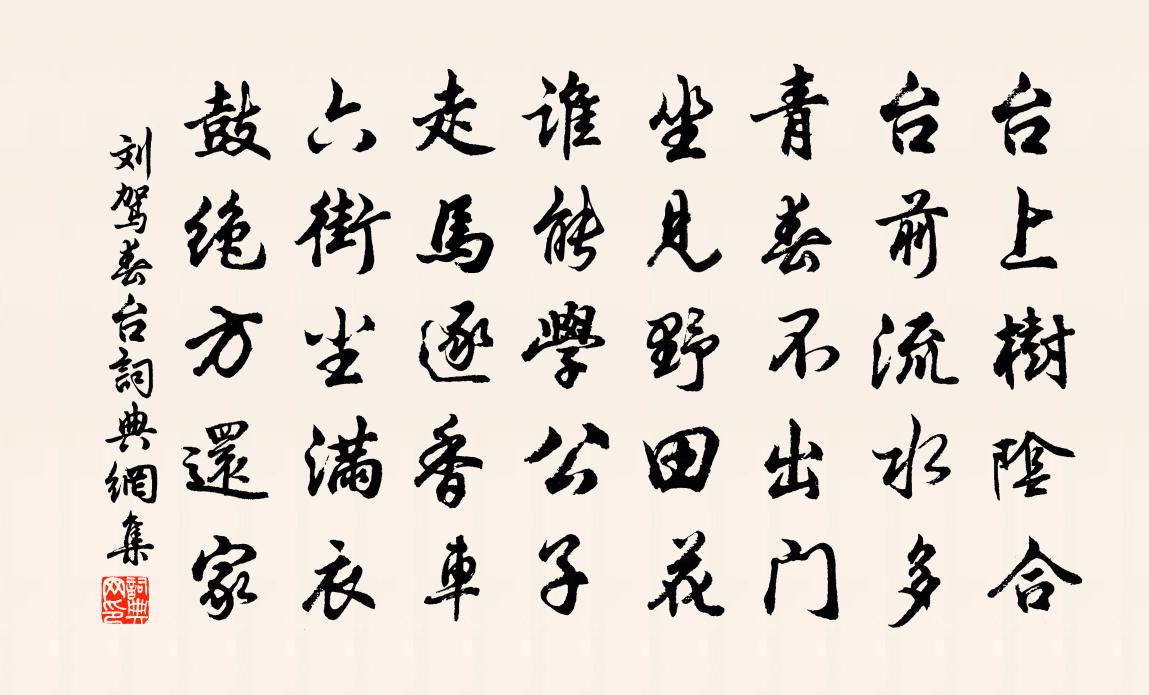 台上樹陰合
台前流水多
青春不出门
坐見野田花
誰能學公子
走馬逐香車
六街尘满衣
鼓绝方還家
刘驾春台詞典網集
詞典网印